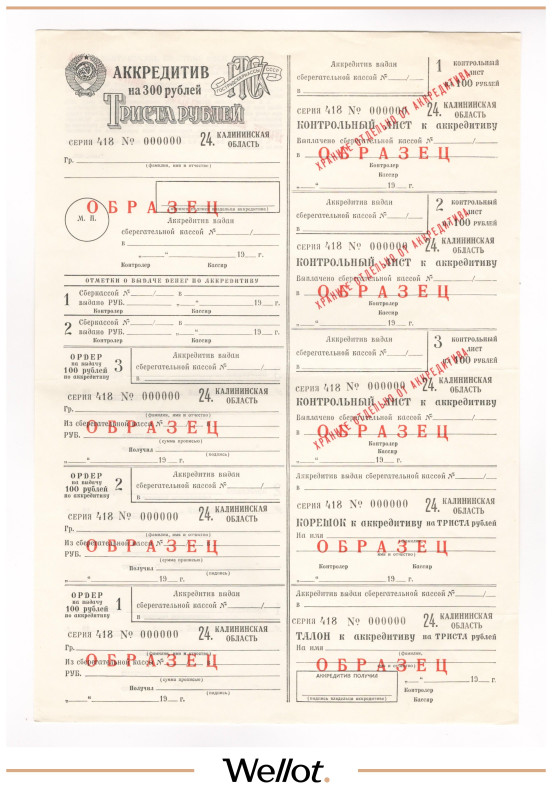 АККРЕДИТИВ
на 300 рублей
ТРИСТА РУБЛЕЙ
ГОСТРУДСБЕРКАССЫ СССР
СЕРИЯ 418 № 000000 24. КАЛИНИНСКАЯ ОБЛАСТЬ
Гр.
(фамилия, имя и отчество)
ОБРАЗЕЦ
М. П.
(подпись владельца аккредитива)
Аккредитив выдан
сберегательной кассой № /
в
„ “ 19 г.
Контролер Кассир
ОТМЕТКИ О ВЫДАЧЕ ДЕНЕГ ПО АККРЕДИТИВУ
1 Сберкассой № / в
выдано РУБ. „ “ 19 г.
Контролер Кассир
2 Сберкассой № / в
выдано РУБ. „ “ 19 г.
Контролер Кассир
ОРДЕР
на выдачу
100 рублей
по аккредитиву
3
Аккредитив выдан
сберегательной кассой № /
в
СЕРИЯ 418 № 000000 24. КАЛИНИНСКАЯ ОБЛАСТЬ
Гр.
(фамилия, имя и отчество)
Из сберегательной кассы № / в
ОБРАЗЕЦ
РУБ.
(сумма прописью)
Получил
„ “ 19 г. (подпись)
ОРДЕР
на выдачу
100 рублей
по аккредитиву
2
Аккредитив выдан
сберегательной кассой № /
в
СЕРИЯ 418 № 000000 24. КАЛИНИНСКАЯ ОБЛАСТЬ
Гр.
(фамилия, имя и отчество)
Из сберегательной кассы № / в
ОБРАЗЕЦ
РУБ.
(сумма прописью)
Получил
„ “ 19 г. (подпись)
ОРДЕР
на выдачу
100 рублей
по аккредитиву
1
Аккредитив выдан
сберегательной кассой № /
в
СЕРИЯ 418 № 000000 24. КАЛИНИНСКАЯ ОБЛАСТЬ
Гр.
(фамилия, имя и отчество)
Из сберегательной кассы № / в
ОБРАЗЕЦ
РУБ.
(сумма прописью)
Получил
„ “ 19 г. (подпись)
Аккредитив выдан
сберегательной кассой № /
в
1 контрольный
лист
на 100 рублей
СЕРИЯ 418 № 000000 24. КАЛИНИНСКАЯ ОБЛАСТЬ
КОНТРОЛЬНЫЙ ЛИСТ к аккредитиву
ХРАНИТЕ ОТДЕЛЬНО ОТ АККРЕДИТИВА
Выплачено сберегательной кассой № /
в
ОБРАЗЕЦ
Контролер
„ “ 19 г. Кассир
Аккредитив выдан
сберегательной кассой № /
в
2 контрольный
лист
на 100 рублей
СЕРИЯ 418 № 000000 24. КАЛИНИНСКАЯ ОБЛАСТЬ
КОНТРОЛЬНЫЙ ЛИСТ к аккредитиву
ХРАНИТЕ ОТДЕЛЬНО ОТ АККРЕДИТИВА
Выплачено сберегательной кассой № /
в
ОБРАЗЕЦ
Контролер
„ “ 19 г. Кассир
Аккредитив выдан
сберегательной кассой № /
в
3 контрольный
лист
на 100 рублей
СЕРИЯ 418 № 000000 24. КАЛИНИНСКАЯ ОБЛАСТЬ
КОНТРОЛЬНЫЙ ЛИСТ к аккредитиву
ХРАНИТЕ ОТДЕЛЬНО ОТ АККРЕДИТИВА
Выплачено сберегательной кассой № /
в
ОБРАЗЕЦ
Контролер
„ “ 19 г. Кассир
Аккредитив выдан сберегательной кассой № /
в
СЕРИЯ 418 № 000000 24. КАЛИНИНСКАЯ ОБЛАСТЬ
КОРЕШОК к аккредитиву на ТРИСТА рублей
На имя
(фамилия,
имя и отчество)
ОБРАЗЕЦ
Контролер Кассир
„ “ 19 г.
Аккредитив выдан сберегательной кассой № /
в
СЕРИЯ 418 № 000000 24. КАЛИНИНСКАЯ ОБЛАСТЬ
ТАЛОН к аккредитиву на ТРИСТА рублей
На имя
(фамилия,
ОБРАЗЕЦ
АККРЕДИТИВ ПОЛУЧИЛ
(подпись владельца аккредитива)
„ “ 19 г.
Контролер
Кассир
Wellot.